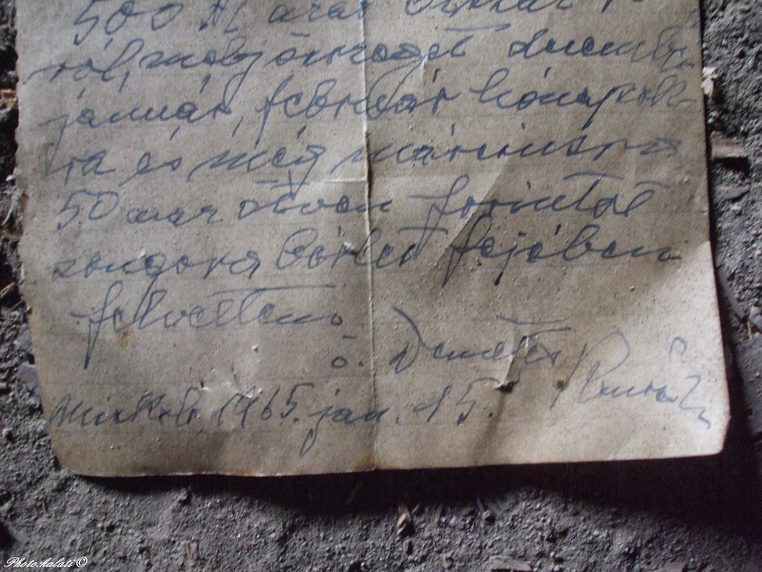 500 Ft azaz ötszáz
ról, mely összeget decemb
január, február hónapok-
ra és még márciusra
50 azaz ötven forintot
zongora bérlet fejében
felvettem.
ö. Demeter
1965. jan. 15.
Photo:kalati ©